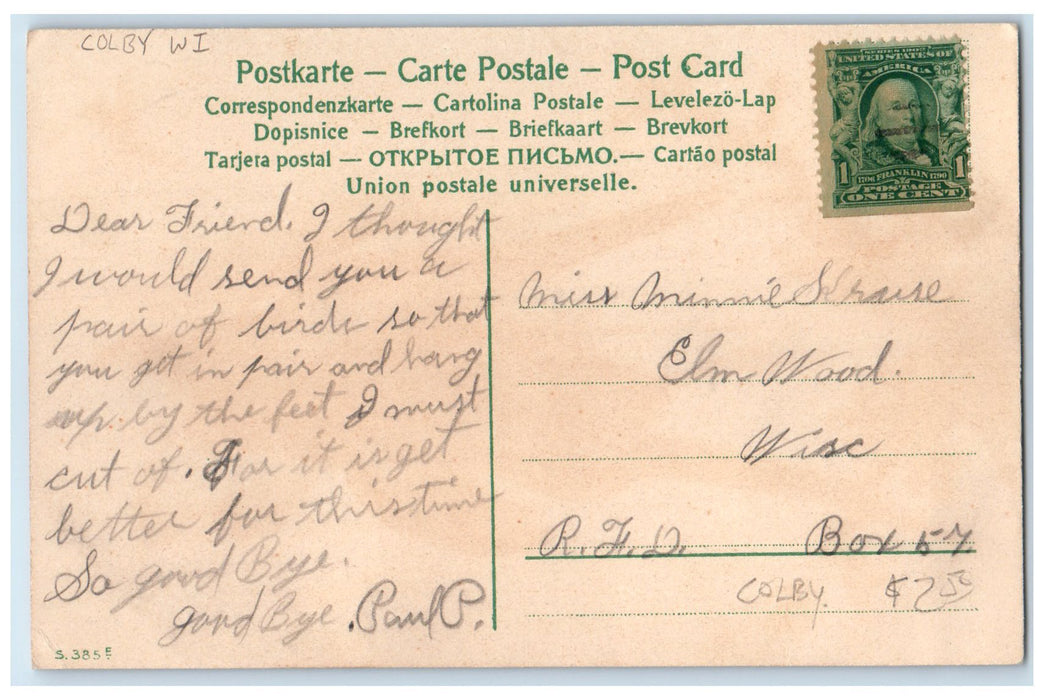 COLBY WI
Postkarte — Carte Postale — Post Card
Correspondenzkarte — Cartolina Postale — Levelezö-Lap
Dopisnice — Brefkort — Briefkaart — Brevkort
Tarjeta postal — ОТКРЫТОЕ ПИСЬМО. — Cartão postal
Union postale universelle.
SERIES 1902
UNITED STATES OF
AMERICA
1 1706 FRANKLIN 1790 1
POSTAGE
ONE CENT
Dear Friend. I thought
I would send you a
pair of birds so that
you get in pair and hang
up. by the feet I must
cut of. For it is get
better for this time
So good Bye.
good Bye. Paul P.
Miss Minnie Krause
Elm Wood.
Wisc
R.F.D. Box 57
COLBY. $7.50
S. 385 E